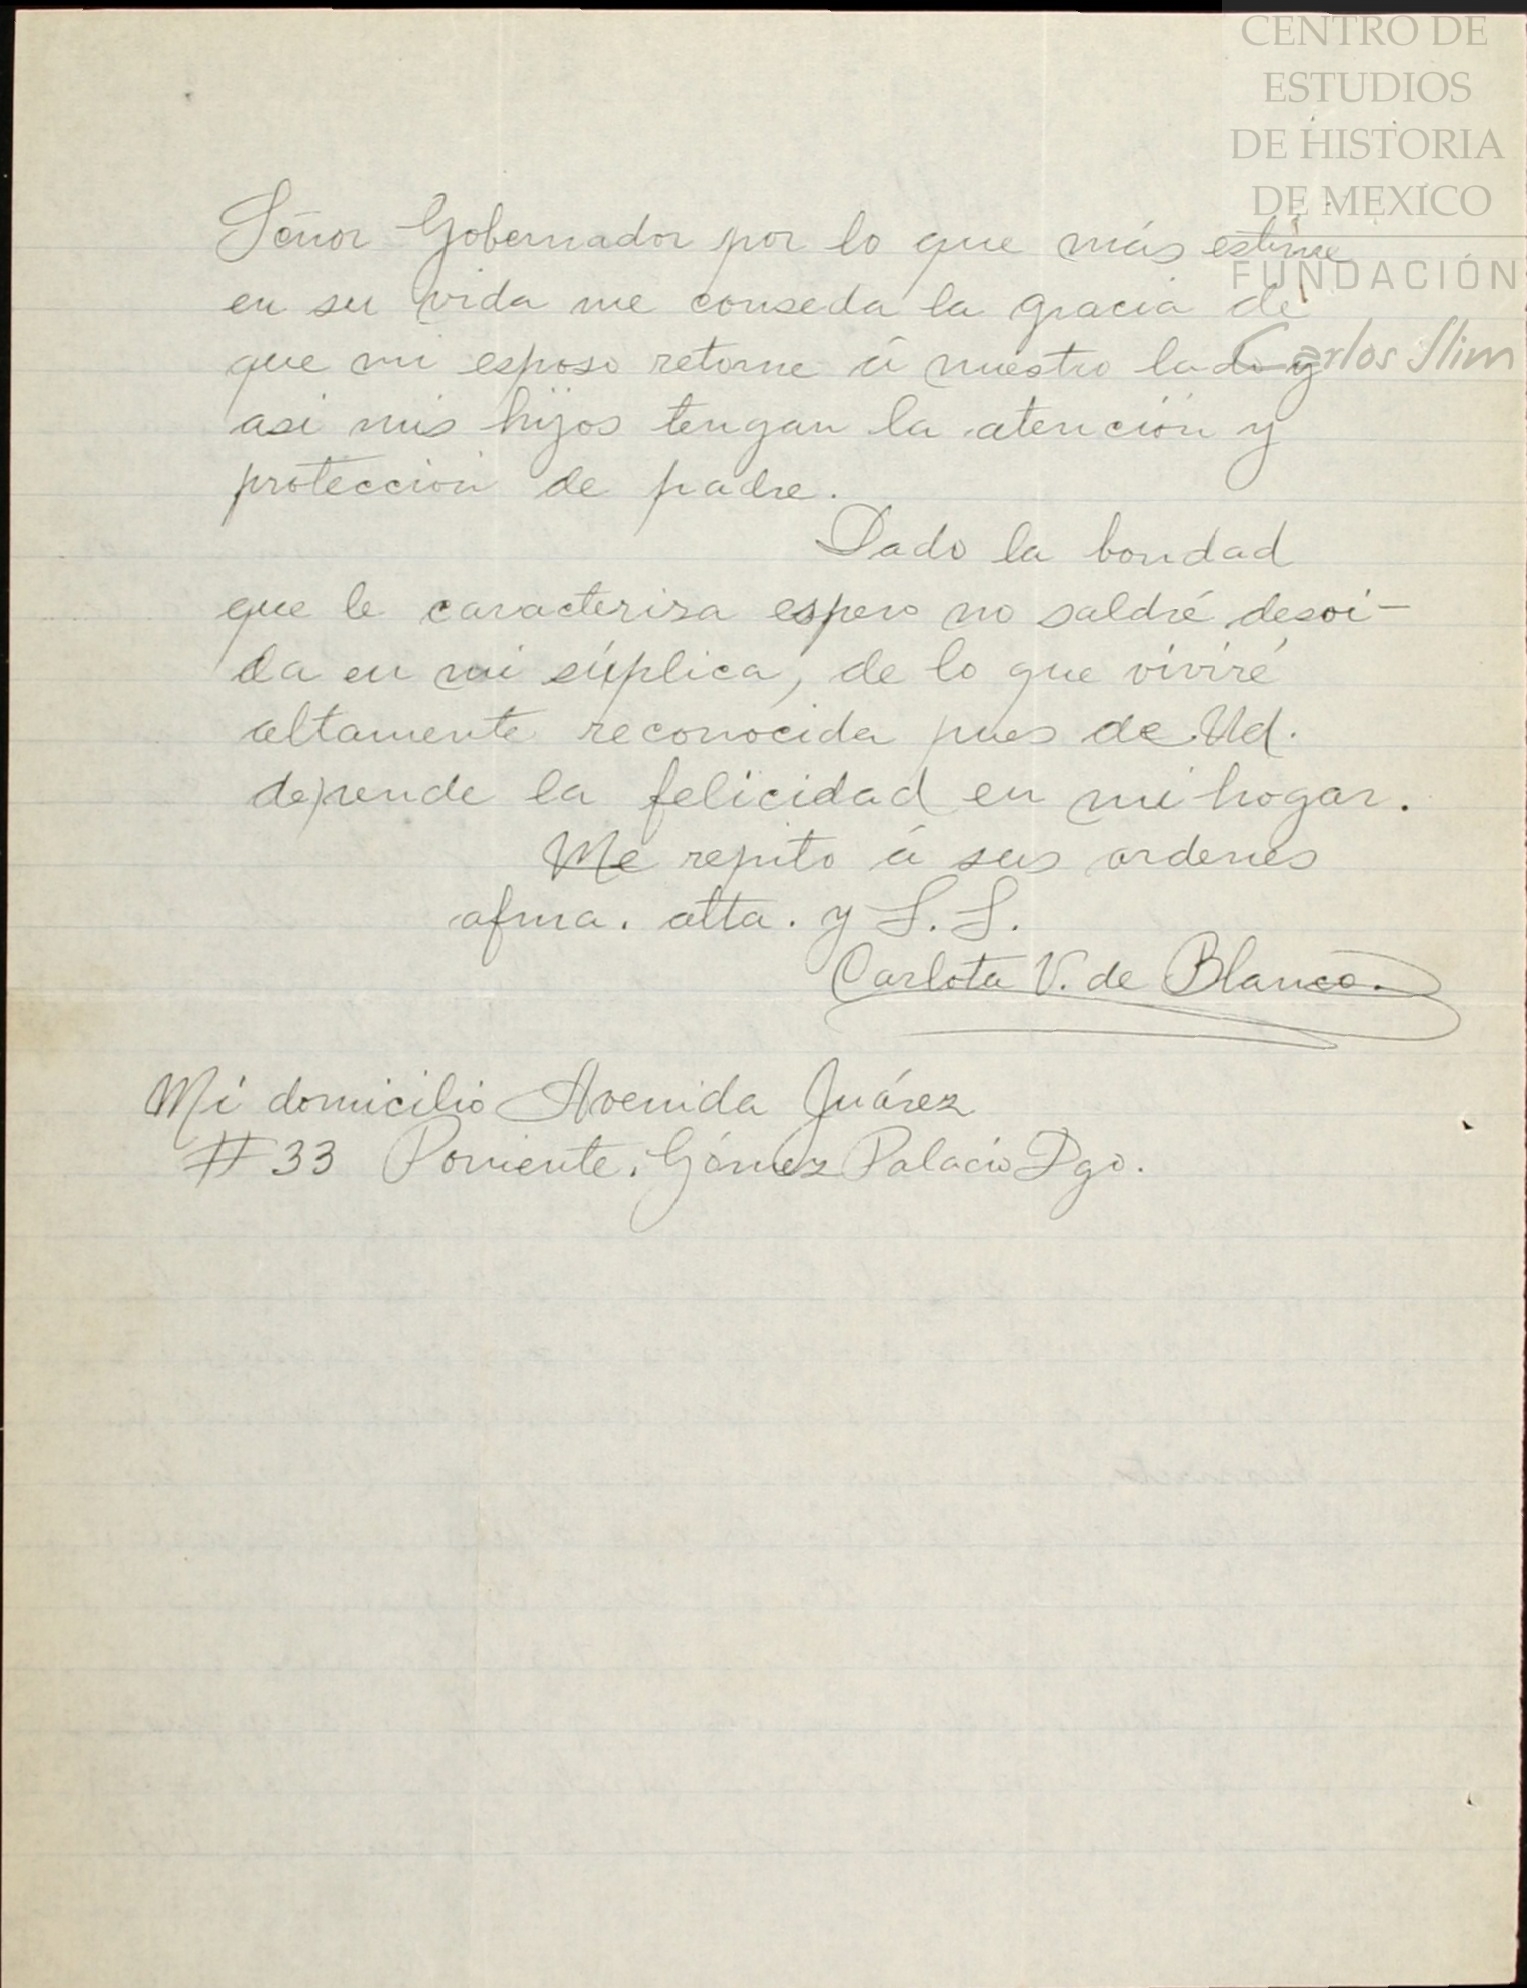 CENTRO DE
ESTUDIOS
DE HISTORIA
DE MEXICO
FUNDACIÓN
Carlos Slim
Señor Gobernador por lo que más estime
en su vida me conseda la gracia de
que mi esposo retorne á nuestro lado y
asi mis hijos tengan la atención y
protección de padre.
Dado la bondad
que le caracterisa espero no saldré desoi-
da en mi súplica, de lo que viviré
altamente reconocida pues de Ud.
depende la felicidad en mi hogar.
Me repito á sus ordenes
afma. atta. y S. S.
Carlota V. de Blanco.
Mi domicilio Avenida Juárez
# 33 Poniente. Gómez Palacio Dgo.